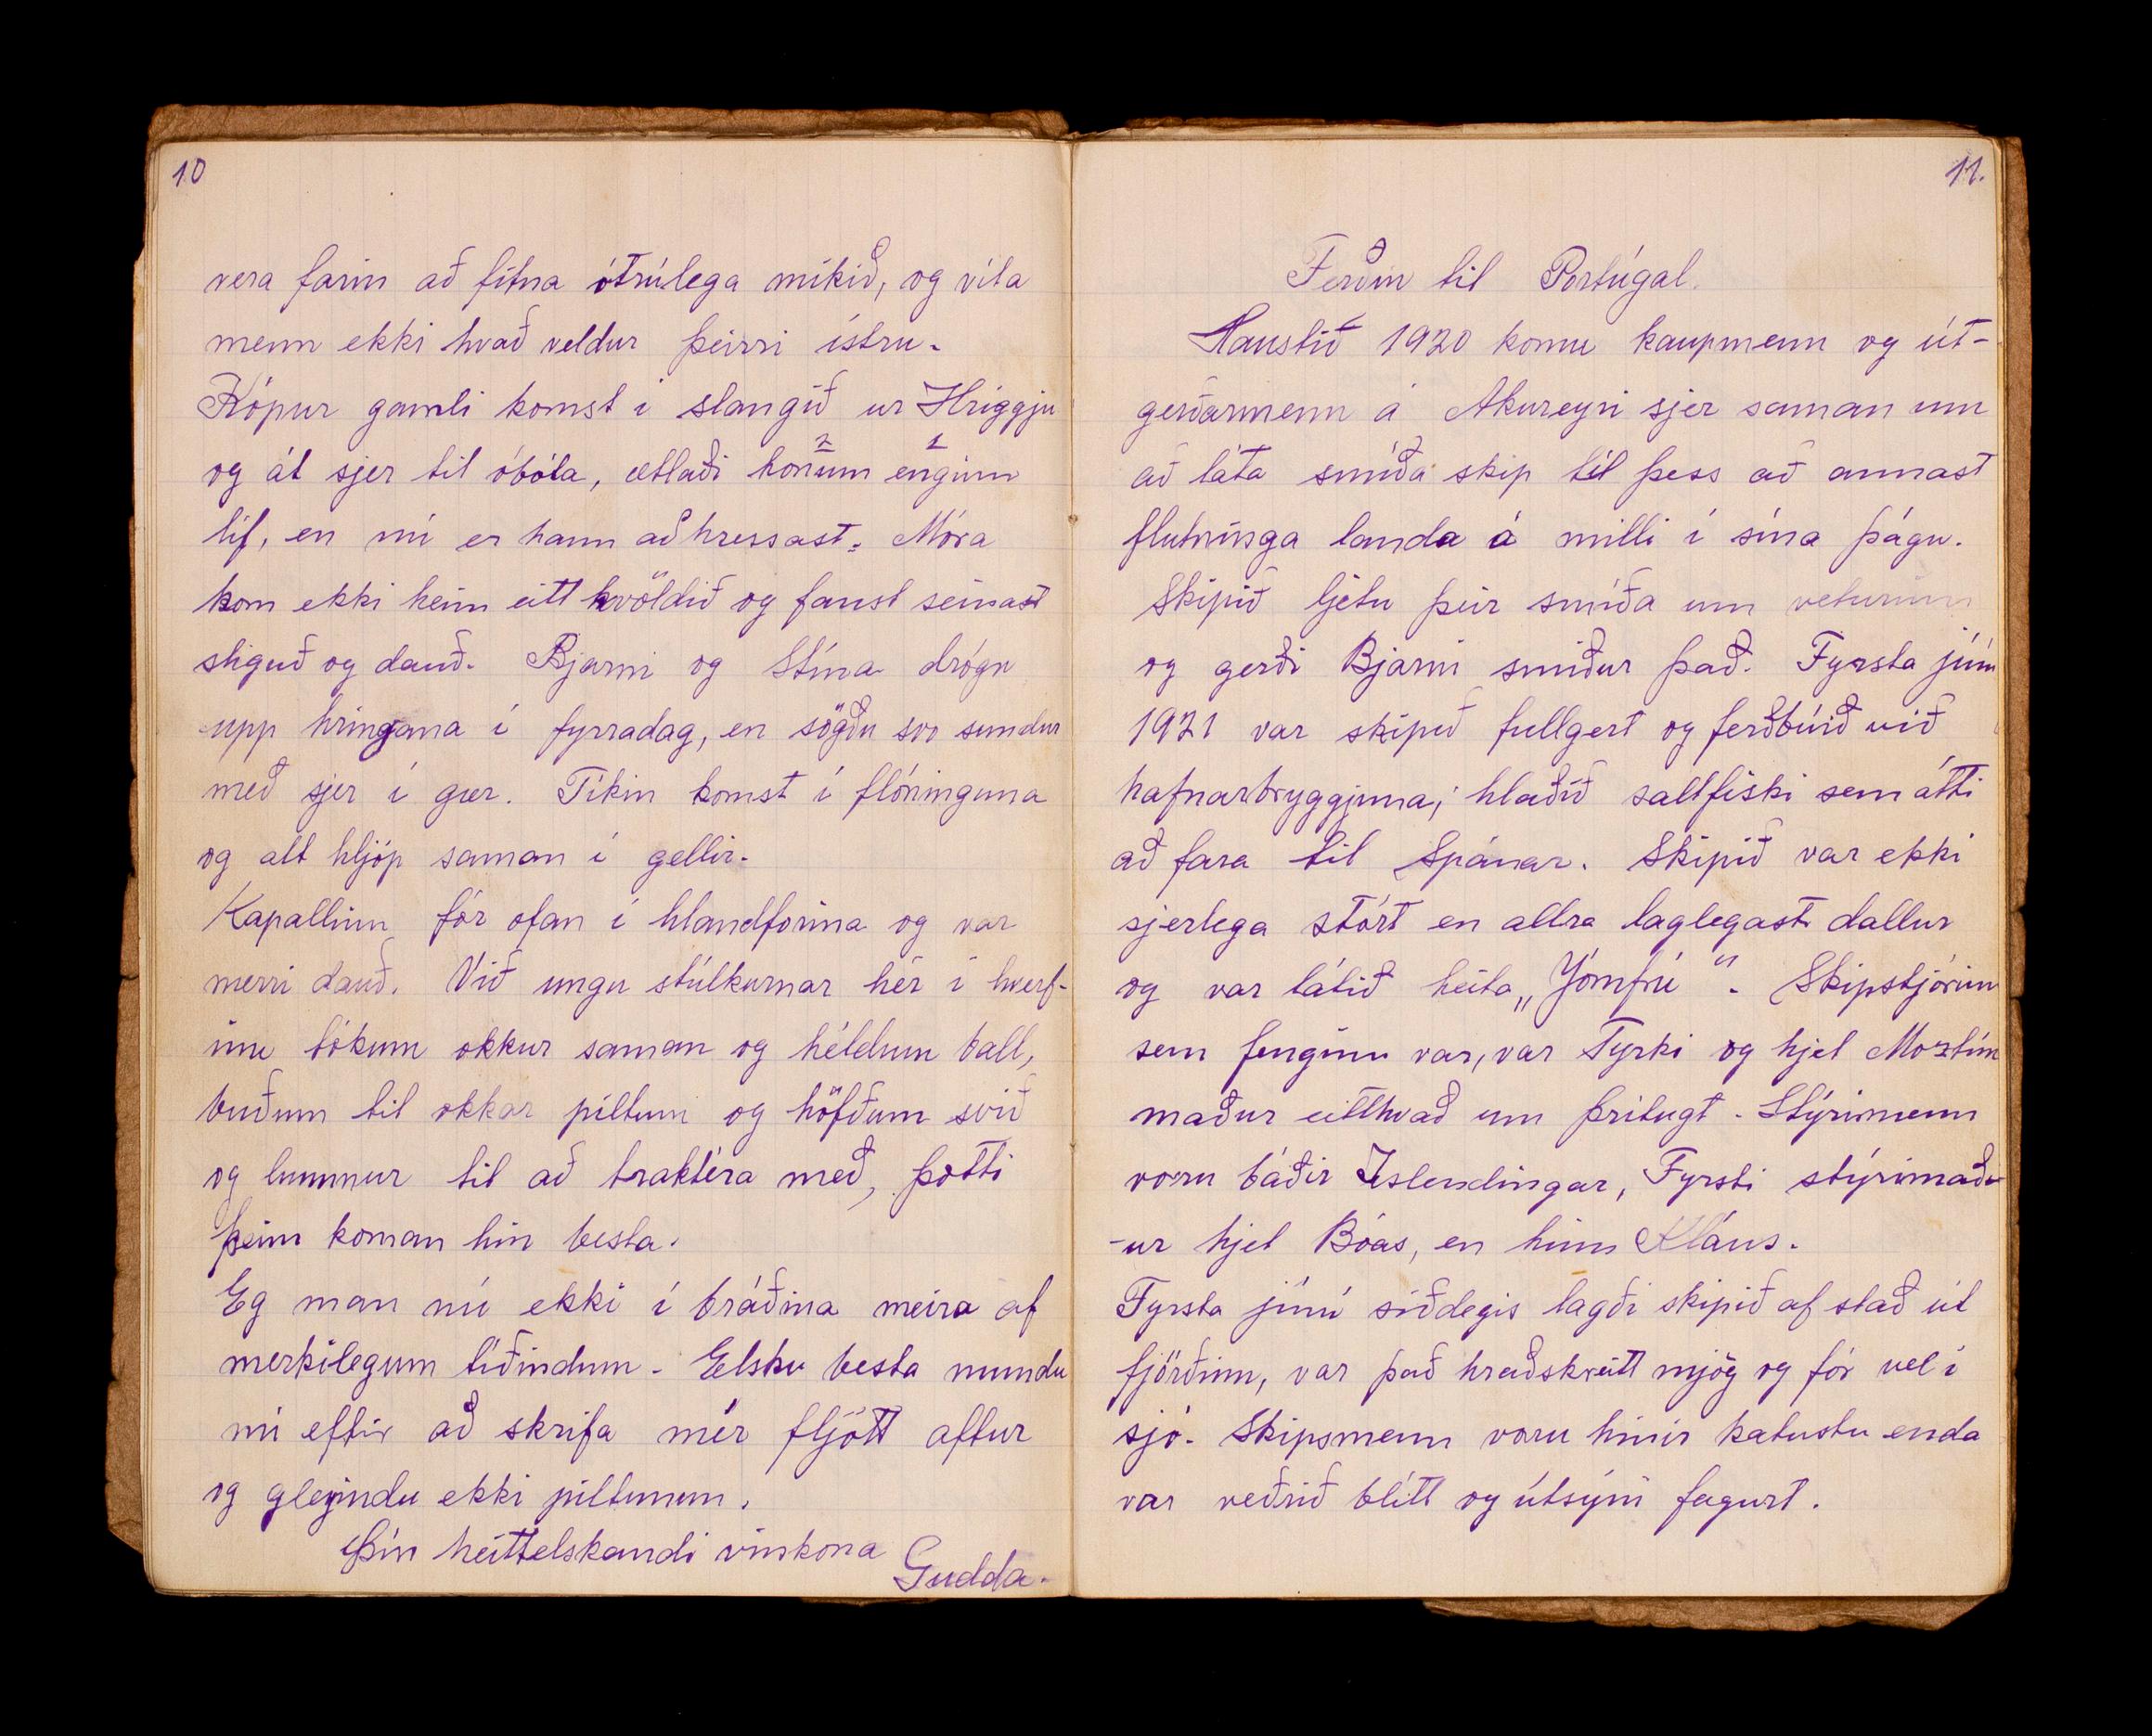 10
vera farin að fitna ótrúlega mikið, og vita
menn ekki hvað veldur þeirri ístru.
Kópur gamli komst í slangið ur Hriggju
og át sjer til óbóta, ætlaði honum² enginn¹
líf, en nú er hann að hressast. Móra
kom ekki heim eitt kvöldið og fanst seinast
stiguð og dauð. Bjarni og Stína drógu
upp hringana í fyrradag, en sögðu svo sundur
með sjer í gær. Tíkin komst í flóninguna
og alt hljóp saman í gellir.
Kapallinn fór ofan í hlandforina og var
nærri dauð. Við ungu stúlkurnar hér í hverf-
inu tókum okkur saman og héldum ball,
buðum til okkar piltum og höfðum svið
og lummur til að traktéra með, þotti
þeim koman hin besta.
Eg man nú ekki í bráðina meira af
merkilegum tíðindum. Elsku besta mundu
nú eftir að skrifa mér fljótt aftur
og gleymdu ekki piltunum.
Þín heittelskandi vinkona
Gudda.
11.
Ferðin til Portúgal.
Haustið 1920 komu kaupmenn og út-
gerðarmenn á Akureyri sjer saman um
að láta smíða skip til þess að annast
flutninga landa á milli í sína þágu.
Skipið ljetu þeir smíða um veturinn
og gerði Bjarni smiður það. Fyrsta júní
1921 var skipið fullgert og ferðbúið við
hafnarbryggjuna, hlaðið saltfiski sem átti
að fara til Spánar. Skipið var ekki
sjerlega stórt en allra laglegasti dallur
og var látið heita „Jómfrú". Skipstjórinn
sem fenginn var, var Tyrki og hjet
maður eitthvað um þritugt. Stýrimenn
voru báðir Islendingar, Fyrsti stýrimað-
-ur hjet Bóas, en hinn Kláus.
Fyrsta júní síðdegis lagði skipið af stað út
fjörðinn, var það hraðskreitt mjög og fór vel í
sjó. Skipsmenn voru hinir katustu enda
var veðrið blítt og útsýni fagurt.